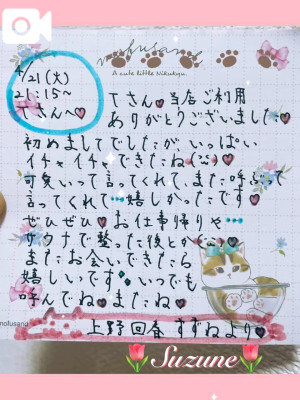 mofusand
A cute little Nikukyu
4/21(火)
21:15〜
Tさんへ♥
Tさん♥当店ご利用
ありがとうございました♥
初めましてでしたがいっぱい
イチャイチャできたね(˘³˘)♥
可愛いって言ってくれて、また呼ぶって
言ってくれて…嬉しかったです♥
ぜひぜひ♥お仕事帰りや…
サウナで整った後とか
またお会いできたら
嬉しいです。いつでも
呼んでね♥またね♥
上野回春すずねより♥
mofusand
Suzune